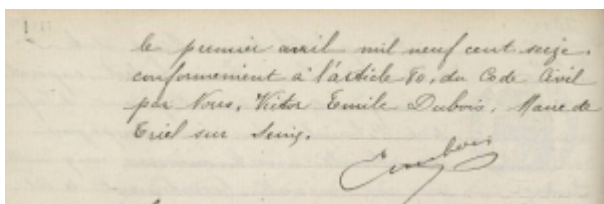 le premier avril mil neuf cent seize.
conformement à l'article 80, du Code Civil
par Nous, Victor Emile Dubois, Maire de
Triel sur Seine.
EDubois